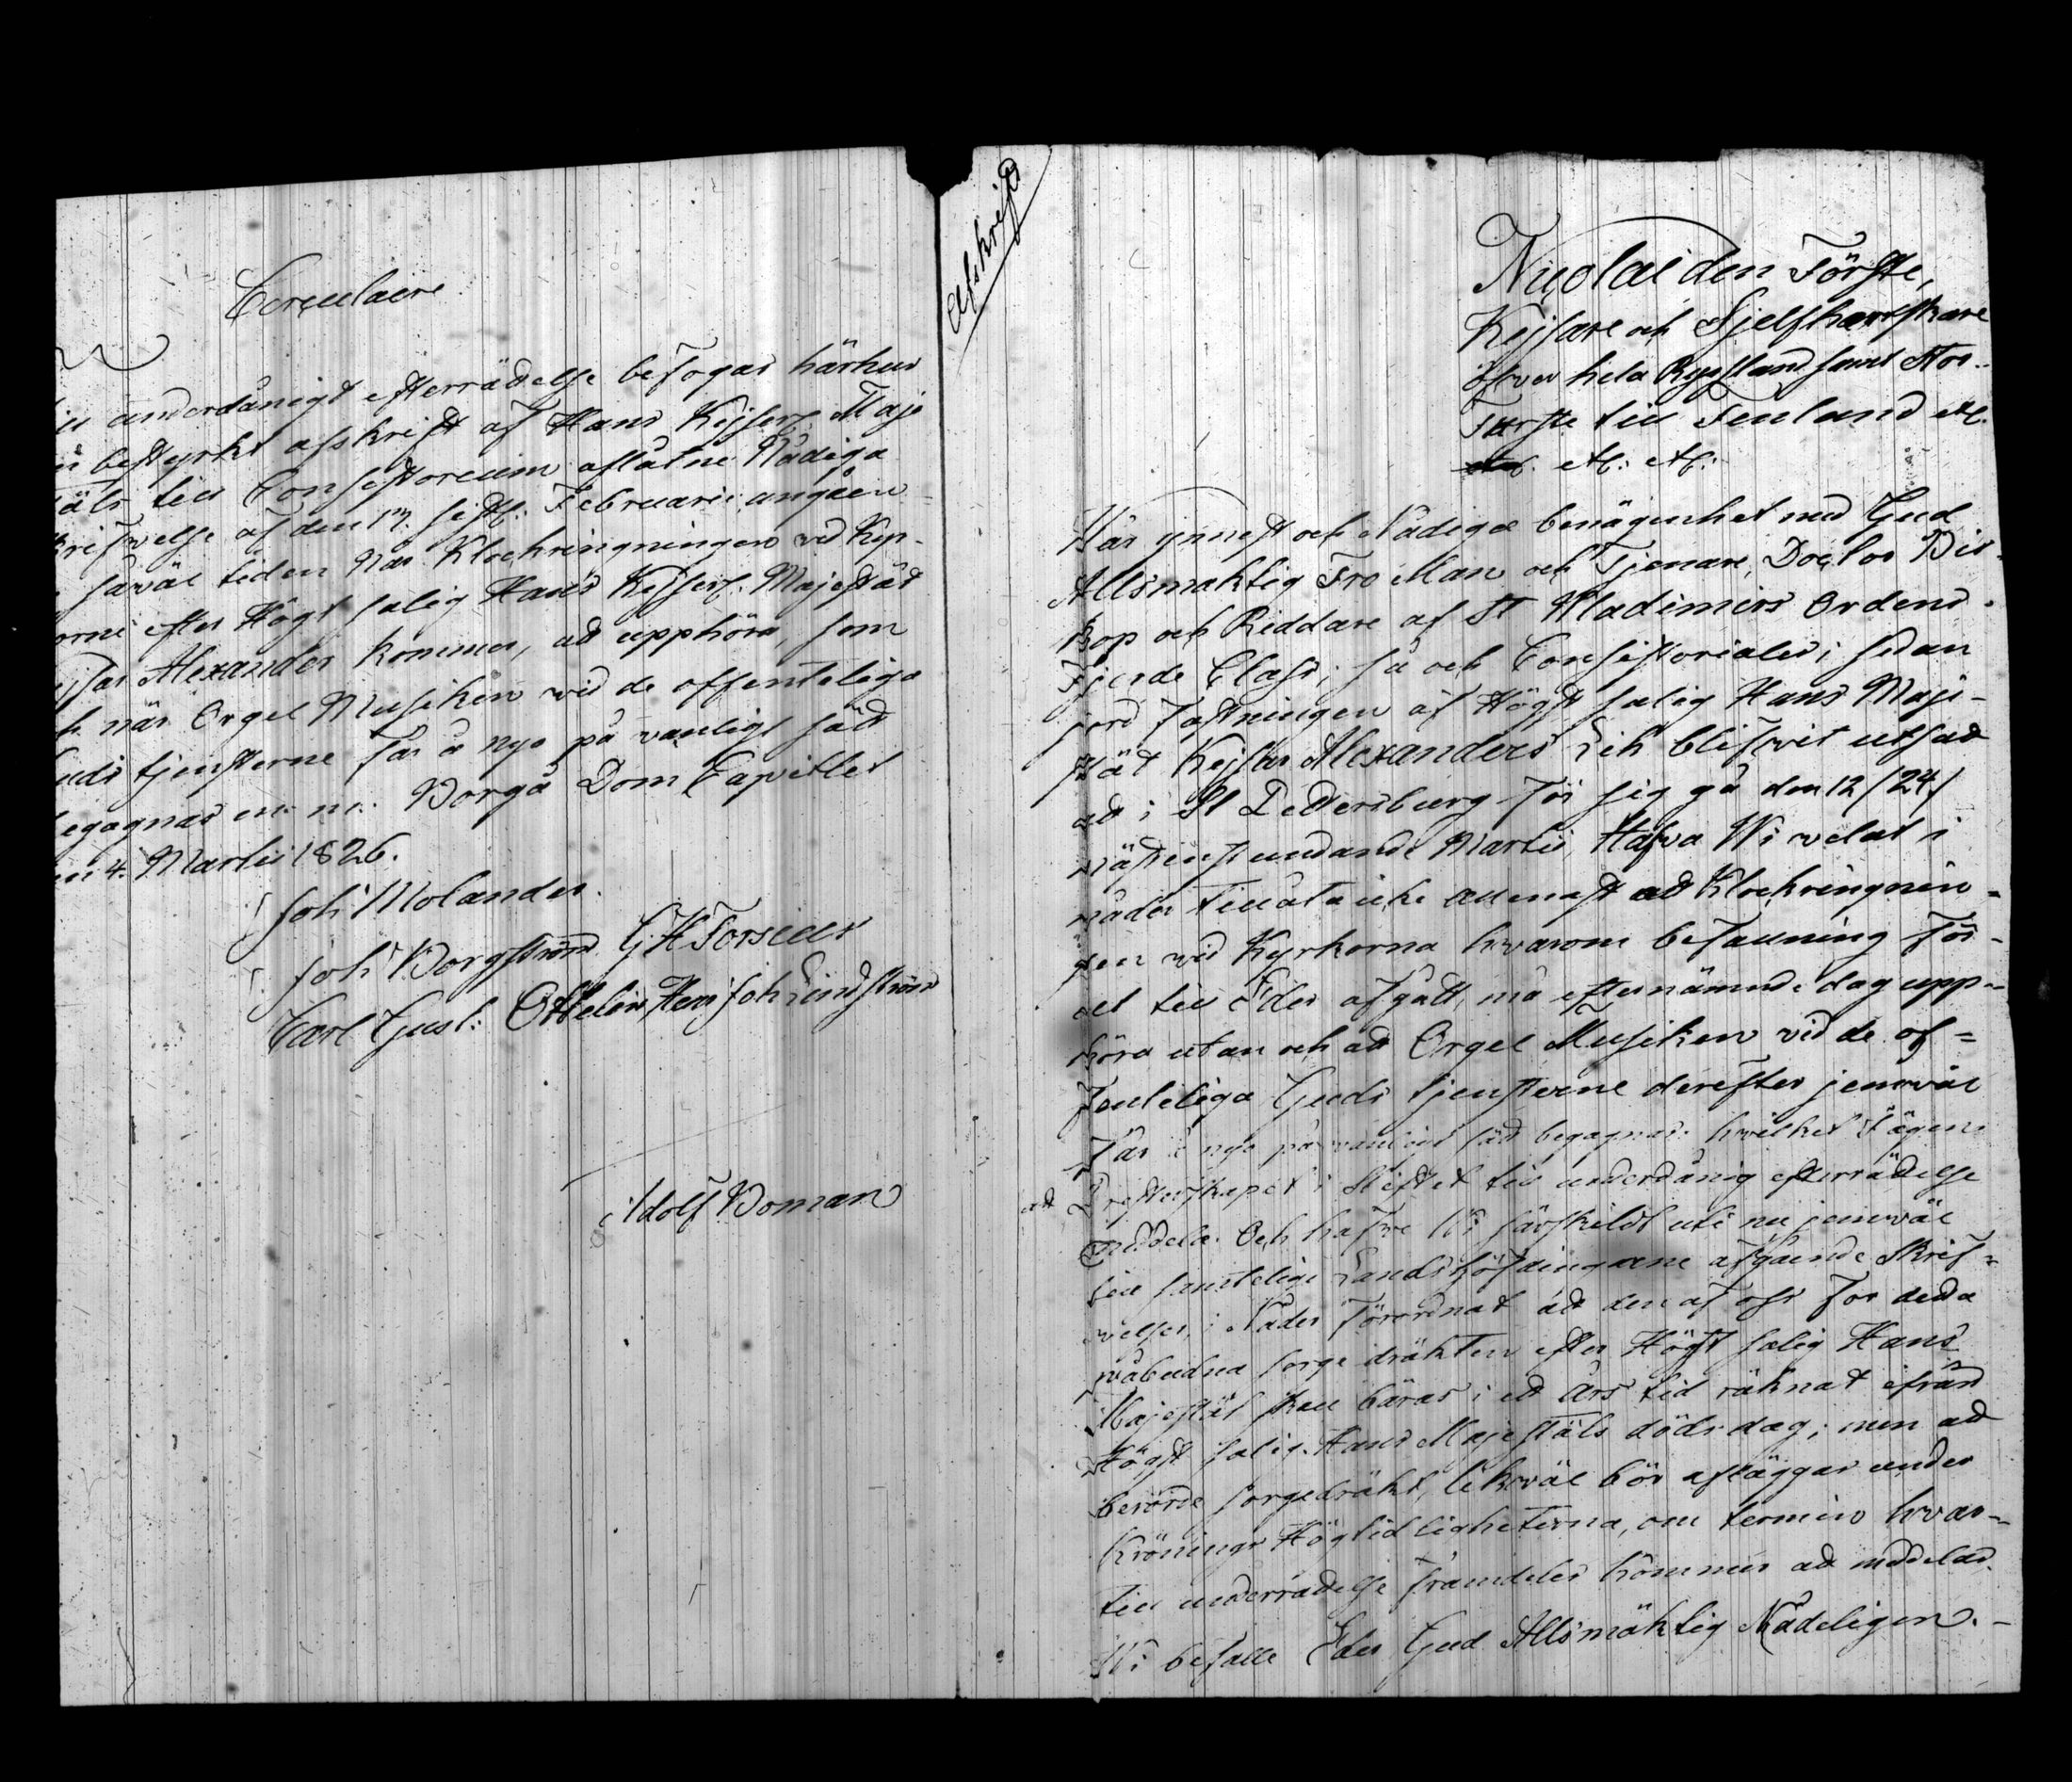 Circulaire
underdånigt efterrädtelse befogas härhus
bestyrkt afskrift af Hans Kejserl. Maje
täts till Consistorium aflåtne Nådiga
krifwelse af den 17. sistl. Februarii angåen
såväl tiden när Klockringningen vid Kyr-
orne efter Högt salig Hans Kejserl. Majestät
ejsar Alexander kommer, att upphöra, som
h när Orgel Musiken wid de offenteliga
uds tjensterne får å nyo på vanligt sätt
egagnas m. m. Borgå Dom Capitlet
en 4. Martii 1826.
Joh: Molander.
Joh: Borgström G H Forsius
Carl Gust: Ottelin, Henr Joh Lindström
Adolf Boman
Afskrift
Nicolai den Förste,
Kejsare och Sjelfherrskare
öfver hela Ryssland samt Stor-
Furste till Finland etc.
etc. etc:
Vår ynnest och Nådiga benägenhet med Gud
Allsmäktig Tro Man och Tjenare, Doctor Bis-
kop och Riddare af St Wladimirs Ordens
Fjerde Class; så och Consistorialer; sedan
jord fästningen af Högst salig Hans Maje-
stät Kejsar Alexanders Lik blifwit utsatt
att i St Pettersburg för sig gå den 12/24/
nästinstundande Martii, Hafva Wi velat i
nåder tillåta icke allenast att Klockringnin=
gen wid Kyrkorna hwarom befallning för-
ut till Eder afgått, må efternämnde dag upp-
höra utan och att Orgel Musiken vid de of=
fenteliga Guds tjensterne derefter jemwäl
får å nyo på vanligt sätt begagnas: hvilket I ägen
att Presterskapet i Stiftet till underdånig efterrättelse
meddela. Och hafwe Wi särskildt uti nu jemwäl
till samtelige Landshöfdingarne afgående Skrif=
welser, i Nåder förordnat att den af oss for detta
påbudna sorge dräkten efter Högst salig Hans
Majestät skall bäras i ett års tid räknat ifrån
Högst salig Hans Majestäts dödsdag; men att
berörde sorgedräkt, likväl bör afläggas under
Krönings Högtidligheterna, om termin hvar-
till underrättelse framdeles kommer att meddelas.
Wi befalle Eder Gud Allsmäktig Nådeligen.-